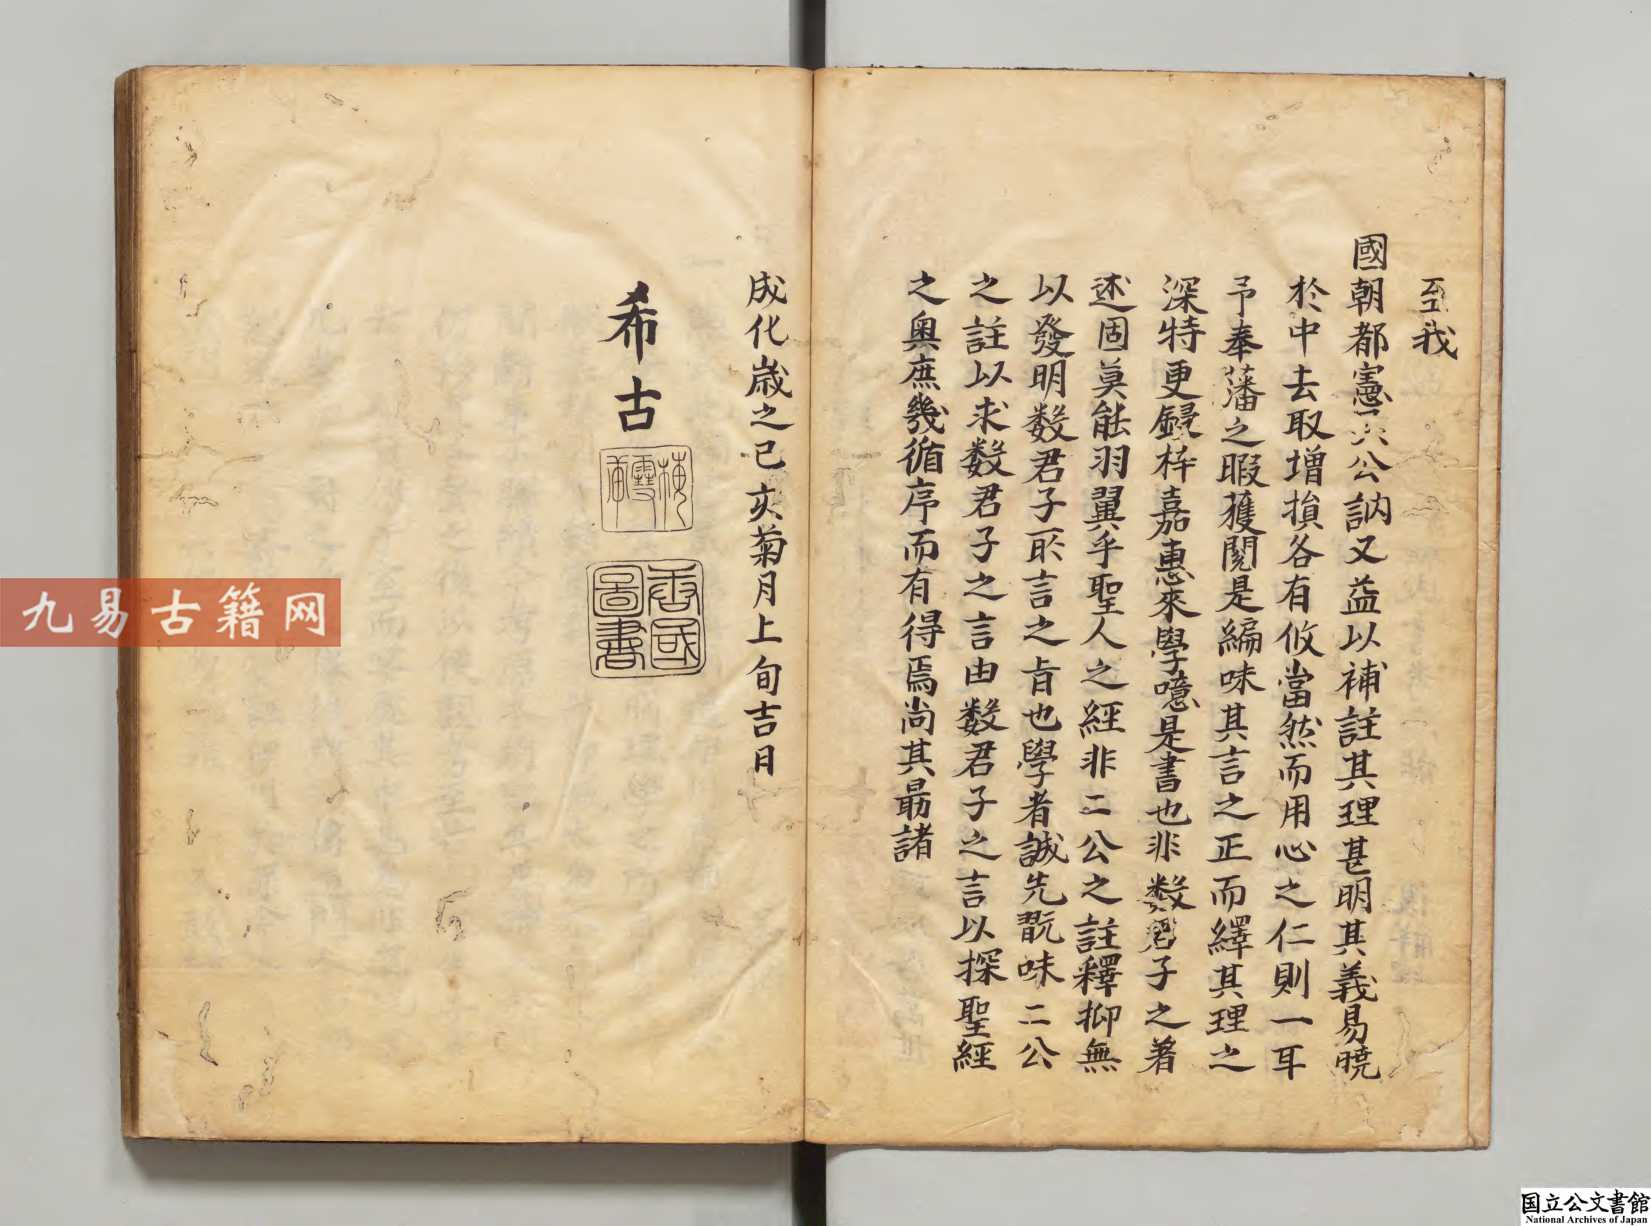 至我
國朝都憲吴公訥又益以補註其理甚明其義易曉
於中去取增損各有攸當然而用心之仁則一耳
予奉藩之暇獲閱是編味其言之正而繹其理之
深特更鋟梓嘉惠來學噫是書也非數君子之著
述固莫能羽翼乎聖人之經非二公之註釋抑無
以發明數君子所言之旨也學者誠先翫味二公
之註以求數君子之言由數君子之言以探聖經
之奥庶幾循序而有得焉尚其勗諸
成化歲之己亥菊月上旬吉日
希古
梅雪軒
國圖書
九易古籍网
国立公文書館
National Archives of Japan